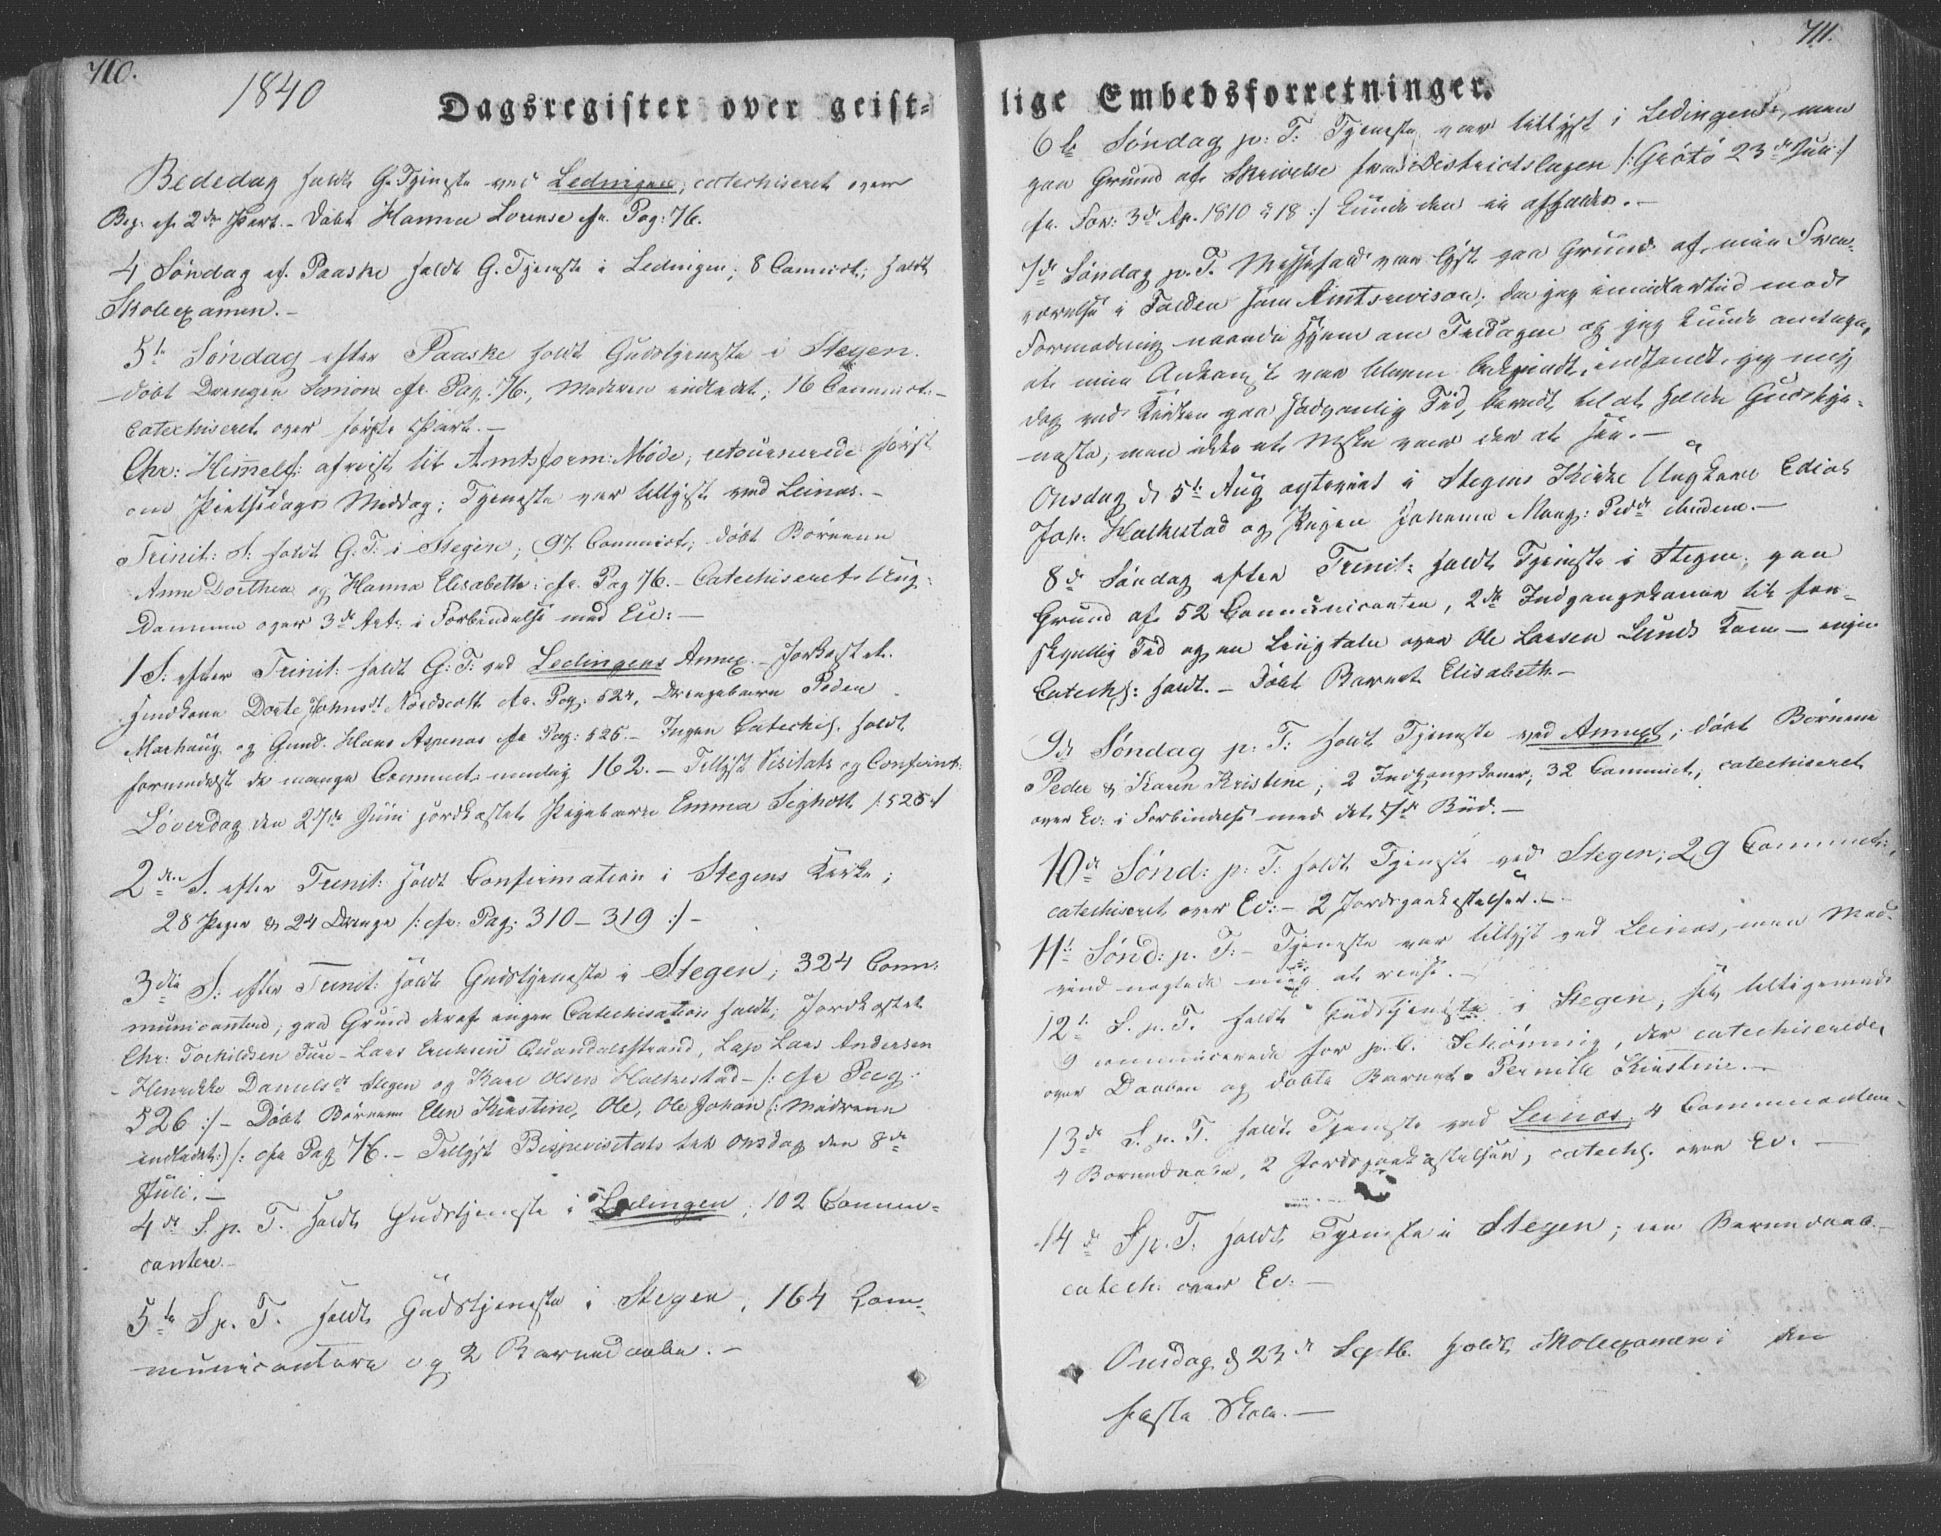 710.
1840
Dagsregister over geist-
Bededag holdt G. Tjeneste ved Ledingen, catechiseret over
Beg. af 2den Part. - Døbt Hanna Lorense cfr. Pag: 76.
4 Søndag ef. Paaske holdt G. Tjeneste i Ledingen; 8 Comnict; holdt
Skoleexamen. -
5te Søndag efter Paaske holdt Gudstjeneste i Stegen.
døbt Drengen Simon cfr. Pag. 76, Moderen indledet; 16 Communict. -
Catechiseret over første Part. -
Chr: Himelf: afreist til Amtsform: Møde, retournerede først
om Pintsedags Middag; Tjeneste var tillyst ved Leinæs. -
Trinit: S: holdt G. T: i Stegen; 97 Communict; døbt Børnene
Anne Dorthea og Hanna Elisabeth: cfr. Pag 76. - Catechiseret Ung-
Dommen over 3de Art: i Forbindelse med Ev: -
1 S: efter Trinit: holdt G: T: ved Ledingens Annex. - Jordkastet
Huuskone Dorte Johnsdt Nordscott cfr. Pag: 524, Drengebarn Peder
Morhaug og Gund. Hans Aspenæs cfr Pag: 526. - Ingen Catechis. holdt
formedelst de mange Communict. nemlig 162. - Tillyst Visitats og Confirmt.
Løverdag den 27de Juni jordkastet Pigebarn Emma Sigholt /: 526 :/
2den S. efter Trinit: holdt Confirmation i Stegens Kirke;
28 Piger & 24 Drenge /: cfr. Pag: 310 - 319 :/ -
3die S: efter Trinit: holdt Gudstjeneste i Stegen; 324 Com-
municantere, paa Grund deraf ingen Catechisation holdt; Jordkastet
Chr: Torkildsen Fure - Lars Eriksen Qvandalsstrand, Lap Lars Andersen
- Henrikke Danielsdt Stegen og Karl Olsen Holkestad - /: cfr Pag:
526 :/ - Døbt Børnene Elen Kirstine, Ole, Ole Johan (: Mødrene
indledet :) /: cfr Pag 76. - Tillyst Bispevisitats til Onsdag den 8de
Juli. -
4de S. p. T. holdt Gudstjeneste i Ledingen; 102 Commu-
cantere. -
5te S p. T. holdt Gudstjeneste i Stegen, 164 Com-
municantere og 2 Barnedaabe. -
711.
lige Embedsforretninger.
6te Søndag p: T: Tjeneste var tillyst i Ledingen, men
paa Grund af Skrivelse fra Districtslægen /: Grøtø 23de Juli :/
cfr. For: 3de Ap. 1810 § 18 :/ kunde den ei afholdes. -
7de Søndag p. T. Messefald var lyst paa Grund af min Fra-
værelse i Folden som Amtsrevisor; da jeg imidlertid mod
Formodning naaede Hjem om Fredagen og jeg kunde antage,
at min Ankomst var bleven bekjendt, indfandt jeg mig
dog ved Kirken paa sædvanlig Tid, beredt til at holde Gudstje-
neste, men ikke et Mske var der at see. -
Onsdag d. 5te Aug egteviet i Stegens Kirke Ungkarl Edias
Joh: Holkestad og Pigen Johanna Marg: Pedd. ibidem. -
8de Søndag efter Trinit: holdt Tjeneste i Stegen, paa
Grund af 52 Communicanter, 2de Indgangskoner til for-
skjellig Tid og en Liigtale over Ole Larsen Lunds Kone - ingen
Catechs: holdt. - Døbt Barnet Elisabeth -
9de Søndag p: T: holdt Tjeneste ved Annexet; døbt Børnene
Peder & Karen Kristine; 2 Indgangskoner; 32 Communict; catechiseret
over Ev: i Forbindelse med det 7de Bud. -
10de Sønd: p: T: holdt Tjeneste ved Stegen; 29 Communict;
catechiseret over Ev: - 2 Jordspaakastelser. -
11te Sønd: p. T: - Tjeneste var tillyst ved Leinæs, men Mod-
vind negtede mig at reise. -
12te S. p. T. holdt Gudstjeneste i Stegen, selv tilligemed
9 communicerede for p. C. Schönning, der catechiserede
over Daaben og døbte Barnet Pernille Kirstine. -
13de S. p. T. holdt Tjeneste ved Leinæs, 4 Communicantere
4 Barnedaabe, 2 Jordspaakastelser, catechs. over Ev. -
14de S p. T. holdt Tjeneste i Stegen; en Barnedaab. -
catech: over Ev: -
Onsdag d. 23de Septb. holdt Skoleexamen i den
faste Skole. -